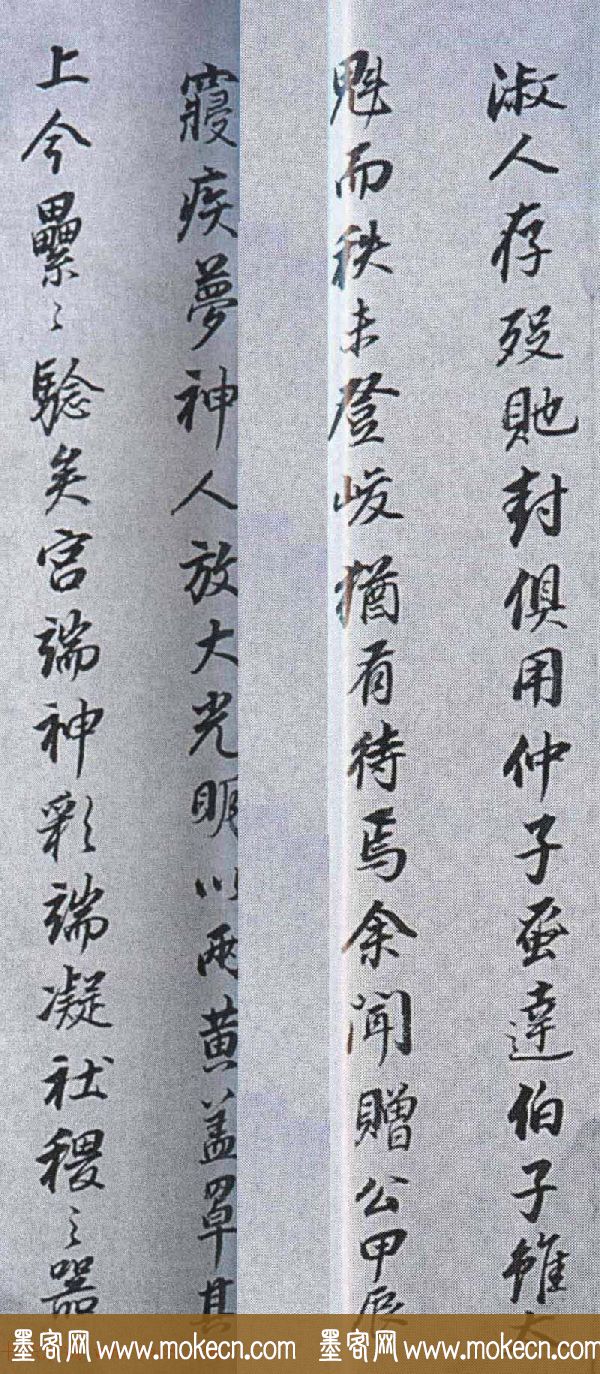 淑人存歿貤封俱用仲子蚤達伯子雖大
魁而秩未登峻猶有待焉余聞贈公甲辰
寢疾夢神人放大光明以兩黃蓋罩其
上今纍纍驗矣宮端神彩端凝社稷之器
墨客网 www.mokecn.com 墨客网 www.mokecn.com